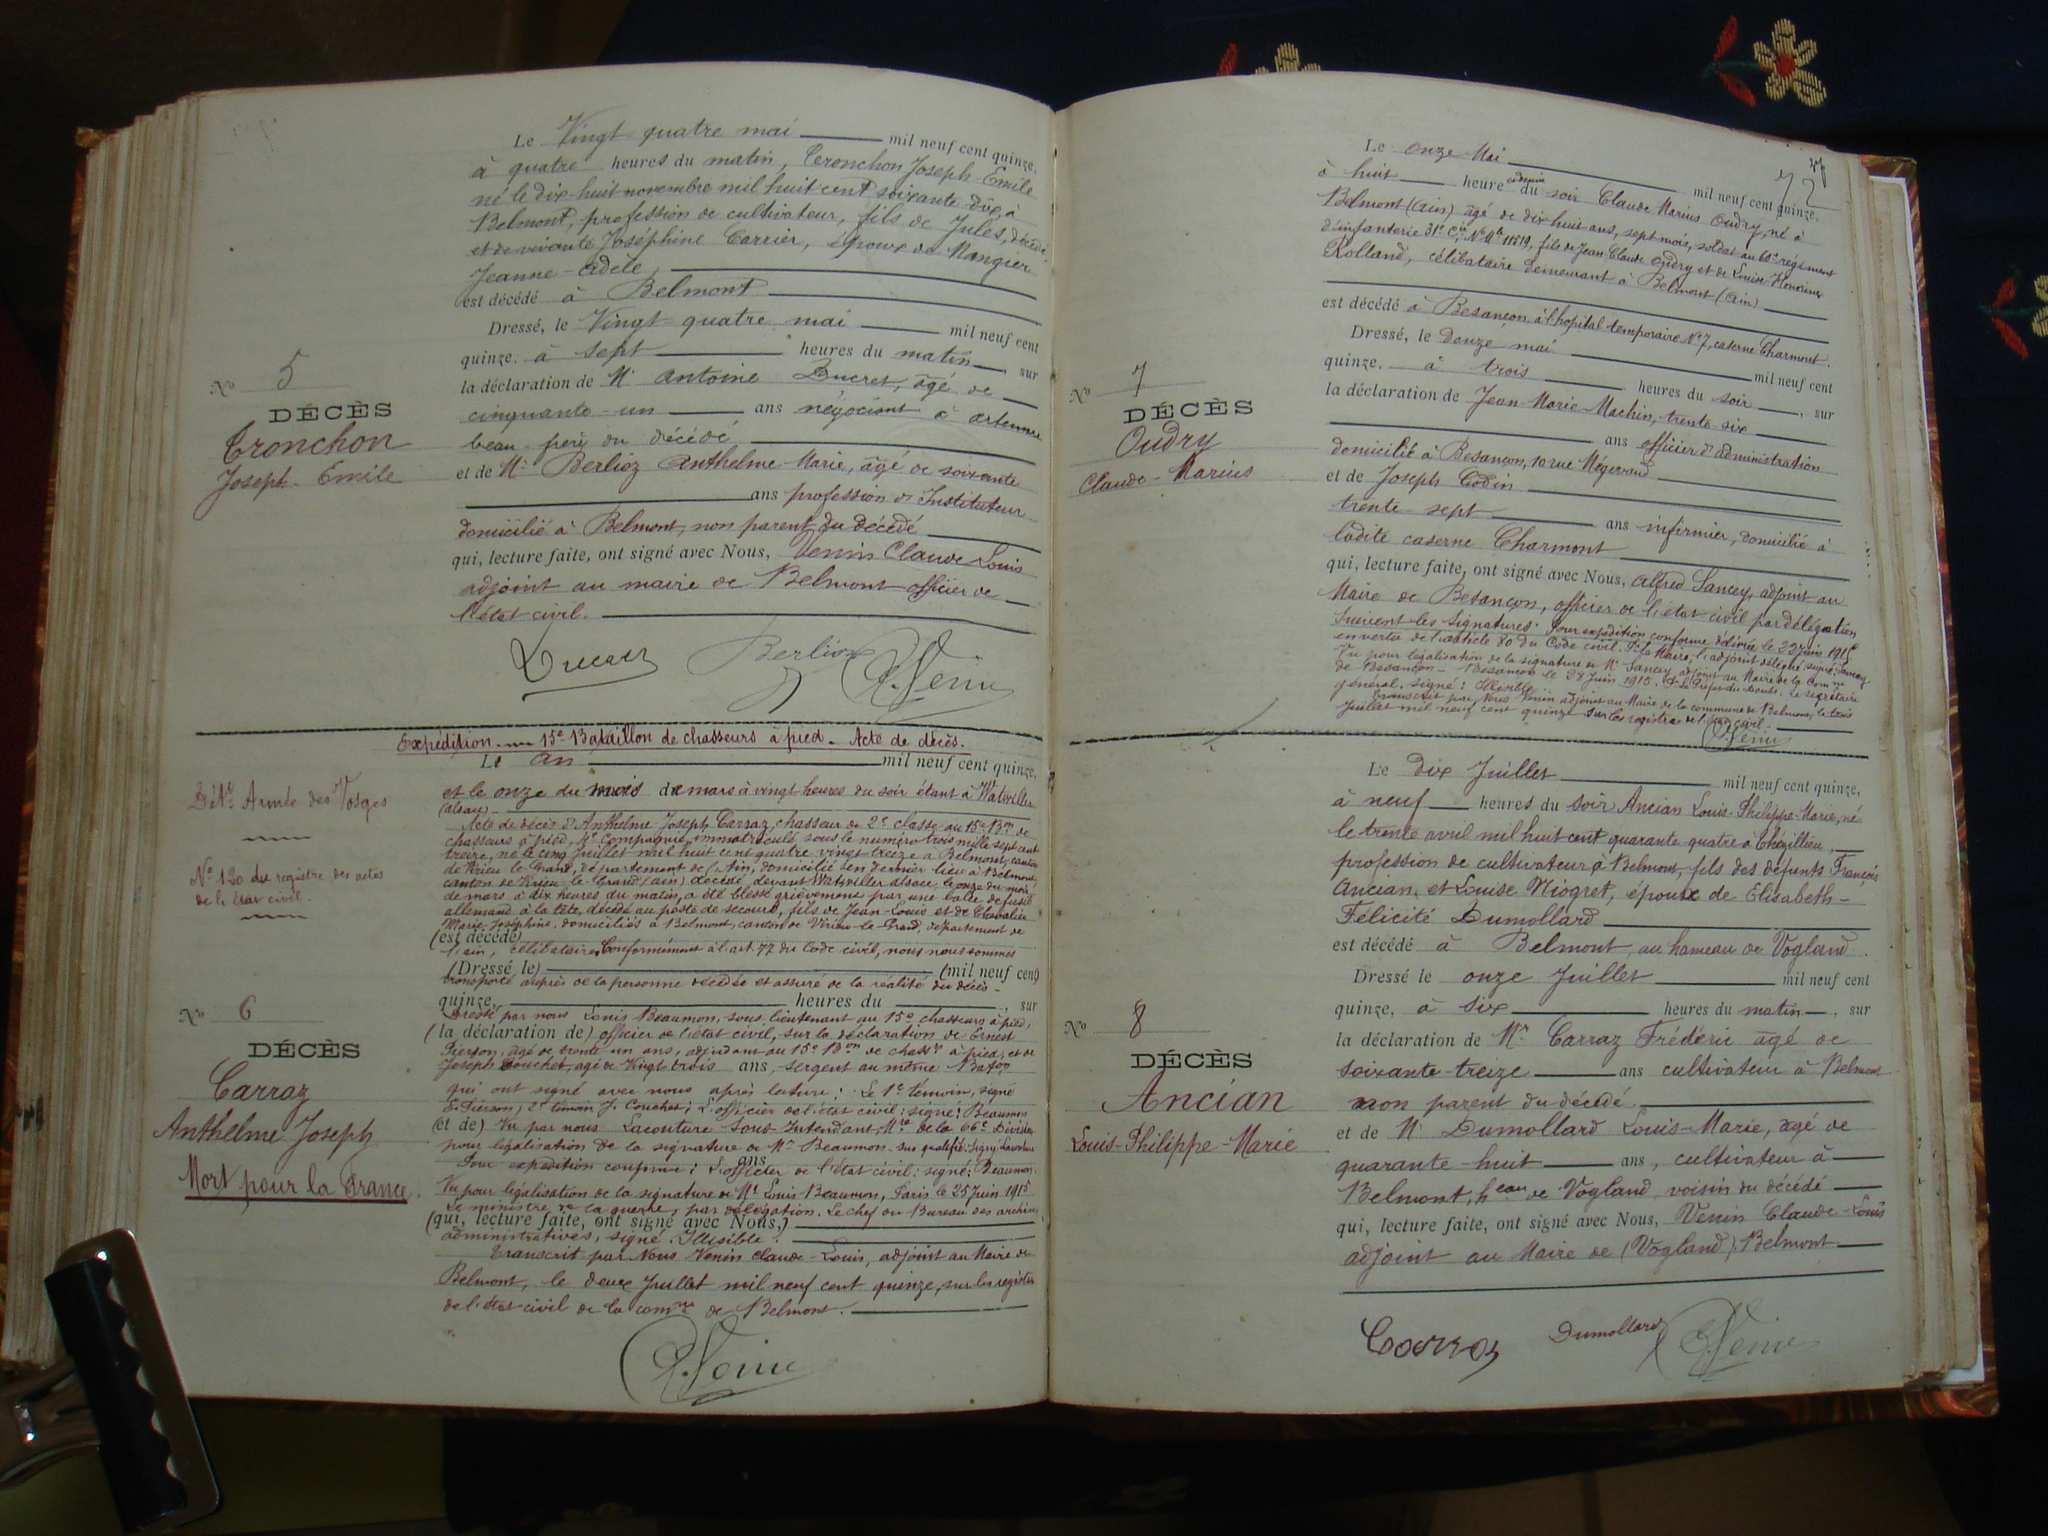 Le Vingt quatre mai mil neuf cent quinze,
à quatre heures du matin, Tronchon Joseph-Emile
né le dix-huit novembre mil huit cent soixante dix, à
Belmont, profession de cultivateur, fils de Jules, décédé
et de vivante Joséphine Carrier, époux de Mangier
Jeanne-Adèle,
est décédé à Belmont
Dressé, le Vingt quatre mai mil neuf cent
quinze. à sept heures du matin, sur
la déclaration de Mr Antoine Ducret, âgé de
cinquante-un ans négociant à Artemare
beau-père du décédé
et de Mr Berlioz Anthelme-Marie, âgé de soixante
ans profession d'Instituteur
domicilié à Belmont, non parent du décédé
qui, lecture faite, ont signé avec Nous, Venin Claude Louis
adjoint au maire de Belmont officier de
l'état civil.
No 5
DÉCÈS
Tronchon
Joseph-Emile
Ducret Berlioz C. Venin
Expédition. 15e Bataillon de chasseurs à pied. Acte de décès.
Le An mil neuf cent quinze,
et le onze du mois de mars à vingt heures du soir étant à Watwiller
(alsace)
Acte de décès d'Anthelme Joseph Carraz, chasseur de 2e classe au 15e Bon de
chasseurs à pied, compagnie, immatriculé sous le numéro trois mille sept cent
treize, né le cinq juillet mil huit cent quatre vingt treize à Belmont, canton
de Virieu le Grand, département de l'Ain, domicilié en dernier lieu à Belmont
canton de Virieu le Grand (Ain) décédé devant Watwiller alsace, le onze du mois
de mars à dix heures du matin, a été blessé grièvement par une balle de fusil
allemand à la tête, décédé au poste de secours, fils de Jean-Louis et de Chevalier
Marie-Joséphine, domiciliés à Belmont, canton de Virieu-le-Grand, département de
(est décédé)
l'ain, célibataire, Conformément à l'art. 77 du Code civil, nous nous sommes
(Dressé le) (mil neuf cent)
transporté auprès de la personne décédée et assuré de la réalité du décès.
quinze, heures du, sur
Dressé par nous Louis Beaumon, sous-lieutenant au 15e chasseurs à pied,
(la déclaration de) officier de l'état civil, sur la déclaration de Ernest
Pierson, âgé de trente un ans, adjudant au 15e Bon de chassrs à pied, et de
Joseph Couchet, agé de Vingt trois ans, sergent au même Baton
qui ont signé avec nous après lecture: Le 1e témoin, signé
E. Pierson; 2e témoin J. Couchet; L'officier de l'état civil: signé: Beaumon
(et de) Vu par nous Lacouture Sous-Intendant Mre de la 66e Division
pour légalisation de la signature de Mr Beaumon sus qualifié. Signé: Lacouture
ans
Pour expédition conforme: L'officier de l'état civil: signé: Beaumon.
Vu pour légalisation de la signature de Mr Louis Beaumon, Paris le 25 Juin 1915
Le ministre de la guerre, par délégation. Le chef du Bureau des archives
(qui, lecture faite, ont signé avec Nous,)
administratives, signé: Illisible.
Transcrit par Nous Venin Claude-Louis, adjoint au Maire de
Belmont, le deux Juillet mil neuf cent quinze, sur les registres
de l'état civil de la comne de Belmont.
Dét. Armée des Vosges
No 120 du registre des actes
de l'Etat civil.
No 6
DÉCÈS
Carraz
Anthelme Joseph
Mort pour la France.
C. Venin
72
Le onze Mai mil neuf cent quinze,
à huit heure demie du soir Claude Marius Oudry, né à
Belmont (Ain) âgé de dix huit ans, sept mois, soldat au 60e régiment
d'infanterie 31e Cie No Mle 11819, fils de Jean-Claude Oudry et de Louise Honorine
Rolland, célibataire demeurant à Belmont (Ain)
est décédé à Besançon à l'hopital temporaire No 7, caserne Charmont.
Dressé, le douze mai mil neuf cent
quinze. à trois heures du soir, sur
la déclaration de Jean-Marie Machin, trente-six
ans officier d'administration
domicilié à Besançon, 10 rue Mégevand
et de Joseph Godin
trente-sept ans infirmier, domicilié à
ladite caserne Charmont
qui, lecture faite, ont signé avec Nous, Alfred Sancey, adjoint au
Maire de Besançon, officier de l'état civil par délégation
Suivent les signatures. Pour expédition conforme délivrée le 23 juin 1915
en vertu de l'article 80 du Code civil. Pr le Maire, l'adjoint délégué signé: Sancey
Vu pour légalisation de la signature de Mr Sancey adjoint au Maire de la comne
de Besançon - Besançon le 28 Juin 1915. Pr le Préfet du Doubs. Le secrétaire
général. signé: Illisible
Transcrit par Nous Venin adjoint au Maire de la commune de Belmont, le trois
Juillet mil neuf cent quinze sur les registres de l'état civil.
C. Venin
No 7
DÉCÈS
Oudry
Claude-Marius
Le dix Juillet mil neuf cent quinze,
à neuf heures du soir Ancian Louis-Philippe-Marie, né
le trente avril mil huit cent quarante quatre à Chézillieu,
profession de cultivateur à Belmont, fils des défunts François
Ancian et Louise Niogret, époux de Elisabeth-
Félicité Dumollard
est décédé à Belmont, au hameau de Vogland.
Dressé le onze Juillet mil neuf cent
quinze, à six heures du matin, sur
la déclaration de Mr Carraz Frédéric âgé de
soixante-treize ans cultivateur à Belmont
non parent du décédé
et de Mr Dumollard Louis-Marie, agé de
quarante-huit ans, cultivateur à
Belmont, heau de Vogland voisin du décédé
qui, lecture faite, ont signé avec Nous, Venin Claude-Louis
adjoint au Maire de (Vogland) Belmont
No 8
DÉCÈS
Ancian
Louis-Philippe-Marie
Carraz Dumollard C. Venin